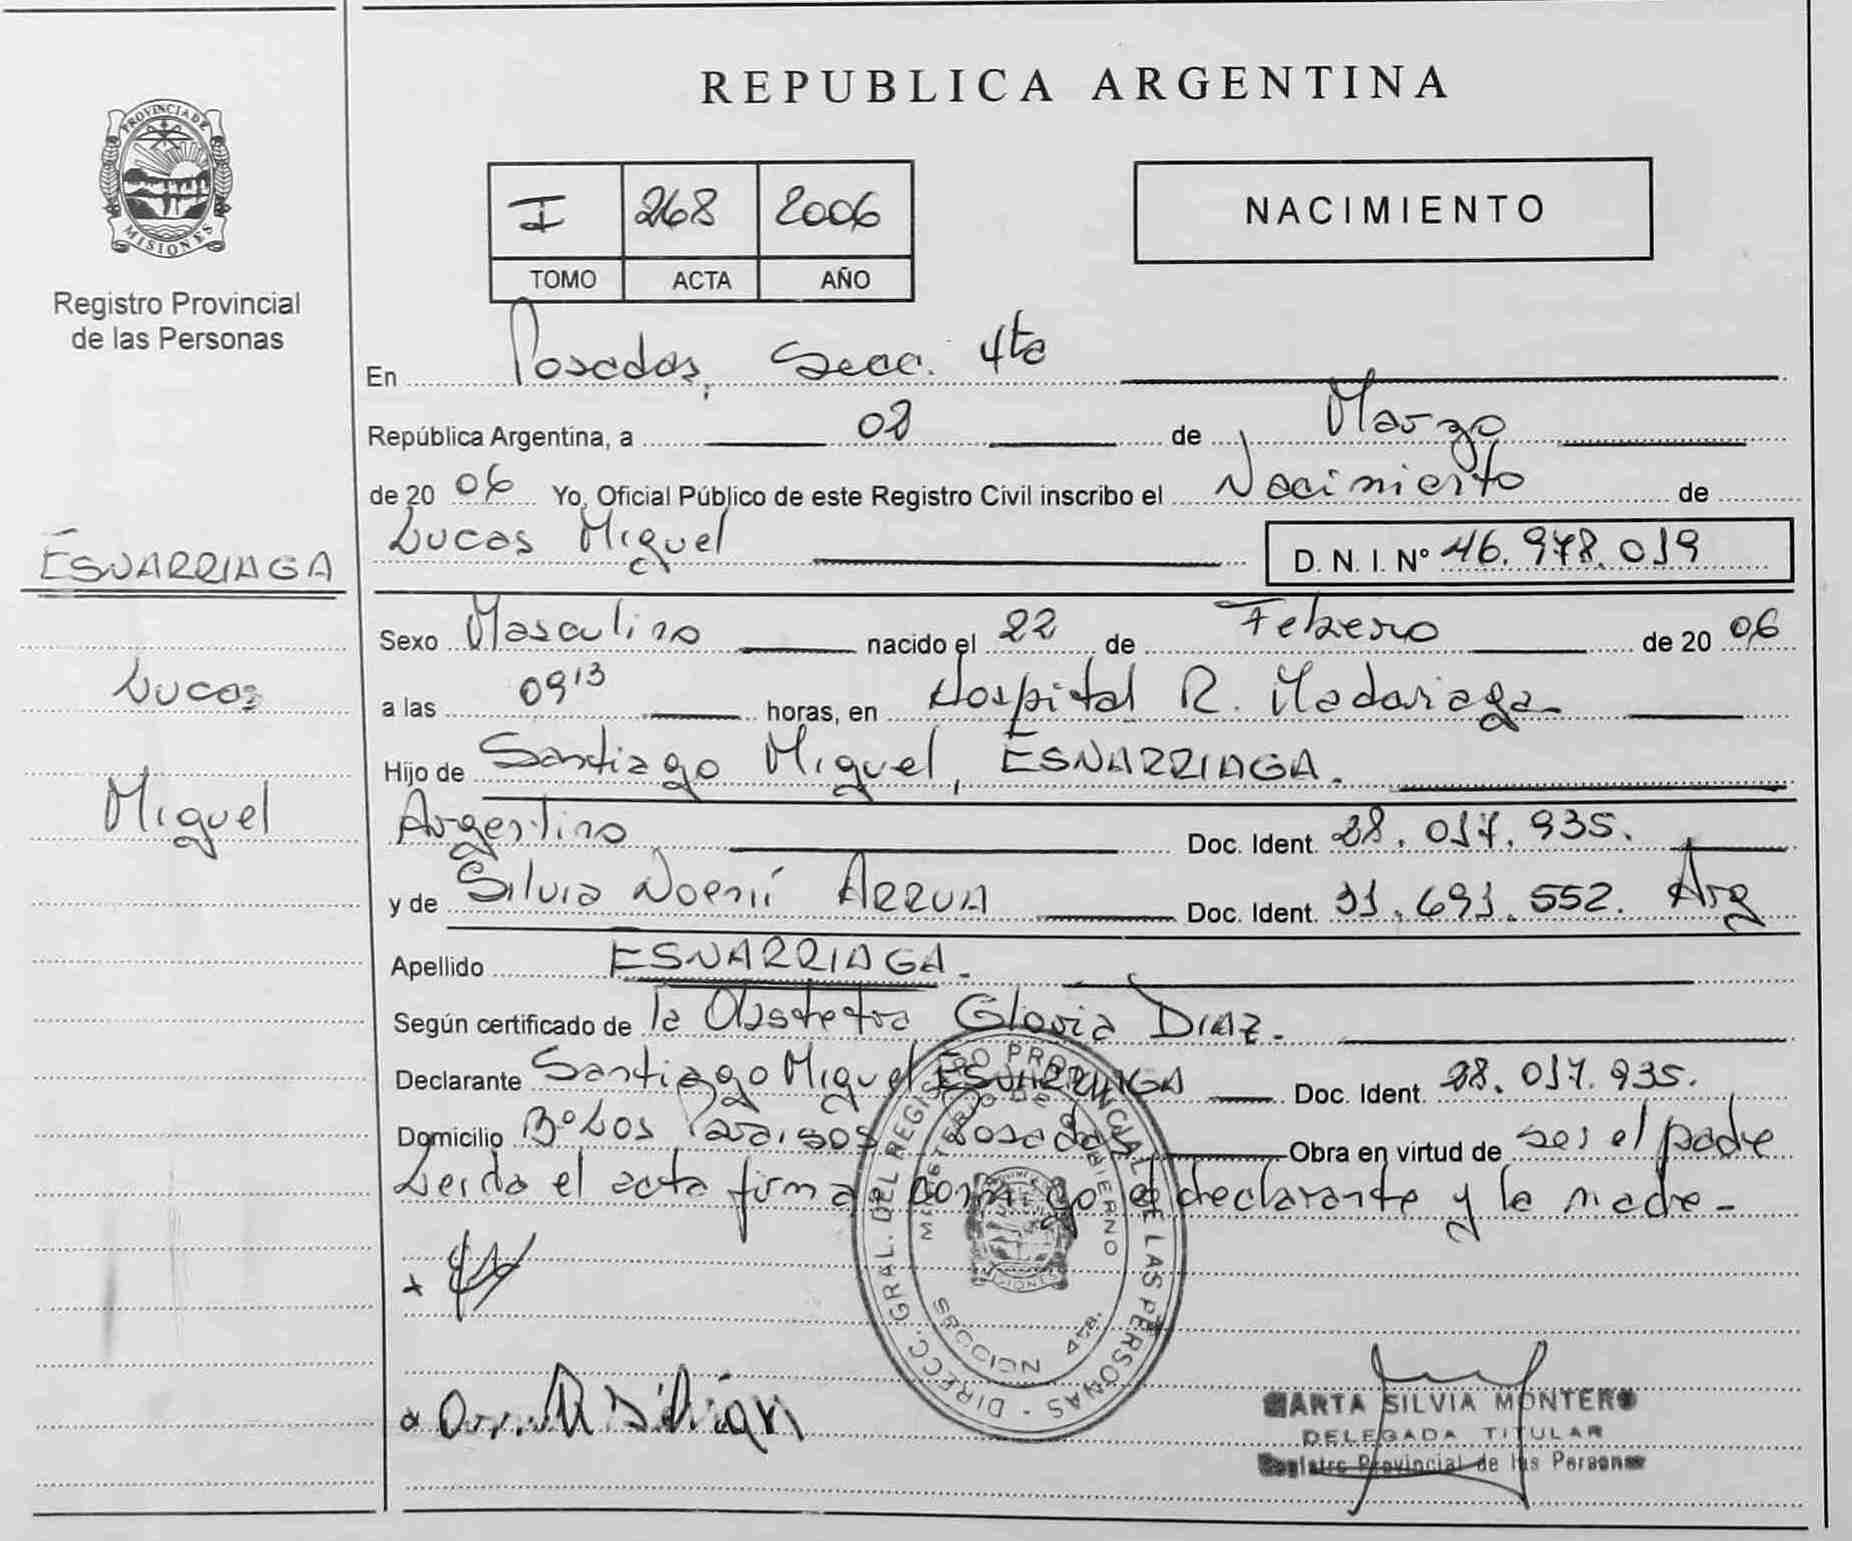 PROVINCIA DE
MISIONES
Registro Provincial
de las Personas
ESNARRIAGA
Lucas
Miguel
REPUBLICA ARGENTINA
I 268 2006
TOMO ACTA AÑO
NACIMIENTO
En Posadas, Secc. 4ta
República Argentina, a 08 de Marzo
de 20 06 Yo, Oficial Público de este Registro Civil inscribo el Nacimiento de
Lucas Miguel D. N. I. Nº 46.978.019
Sexo Masculino nacido el 22 de Febrero de 20 06
a las 09 13 horas, en Hospital R. Madariaga
Hijo de Santiago Miguel, ESNARRIAGA.
Argentino Doc. Ident. 28.017.935.
y de Silvia Noemí ARRUA Doc. Ident. 31.691.552. Arg
Apellido ESNARRIAGA.
Según certificado de la Obstetra Gloria DIAZ.
Declarante Santiago Miguel ESNARRIAGA Doc. Ident. 28.017.935.
Domicilio Bº Los Paraisos Posadas Obra en virtud de ser el padre
Leida el acta firma conmigo el declarante y la madre-
DIRECC. GRAL. DEL REGISTRO PROVINCIAL DE LAS PERSONAS -
MINISTERIO DE GOBIERNO
MISIONES
SECCION 4ta.
MARTA SILVIA MONTERO
DELEGADA TITULAR
Registro Provincial de las Personas